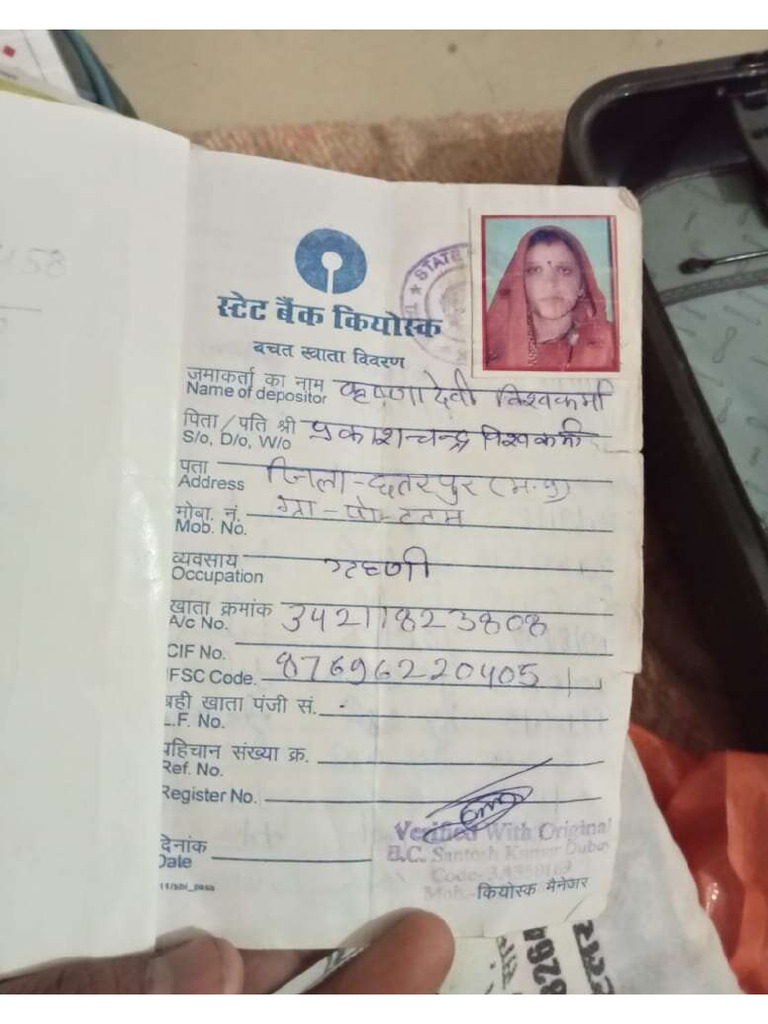 458
STATE
स्टेट बैंक कियोस्क
बचत खाता विवरण
जमाकर्ता का नाम कृष्णा देवी विश्वकर्मा
Name of depositor
पिता / पति श्री प्रकाशचन्द्र विश्वकर्मा
S/o, D/o, W/o
पता जिला-छतरपुर (म.प्र)
Address
मोबा. नं. ग्रा-पो-टटम
Mob. No.
व्यवसाय ग्रहणी
Occupation
खाता क्रमांक 34211823808
A/c No.
CIF No.
FSC Code. 87696220405
बही खाता पंजी सं.
L.F. No.
पहिचान संख्या क्र.
Ref. No.
Register No.
देनांक
Date
Verified With Original
B.C. Santosh Kumar Dubey
Code-
Mob.- कियोस्क मैनेजर